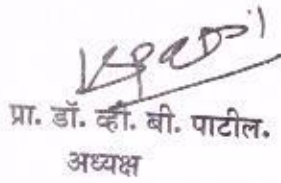 प्रा. डॉ. व्ही. बी. पाटील.
अध्यक्ष